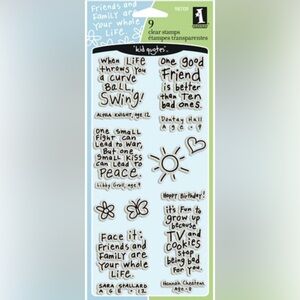 Friends and
Family are
your whole
Life.
9
clear stamps
étampes transparentes
"kid quotes"
When Life
throws you
a curve
Ball,
Swing!
ALYSSA KNIGHT, age 12
One good
Friend
is better
than Ten
bad ones.
Dontay Hall
Age · 9
One small
Fight can
Lead to War,
But one
Small Kiss
can Lead to
Peace.
Libby Groll, age 9
Happy Birthday!
it's Fun to
grow up
because
TV and
Cookies
stop
being bad
For you.
Hannah Cheatem
Age
Face it:
Friends and
Family are
your whole
Life.
SARA STALLARD
AGE · 12